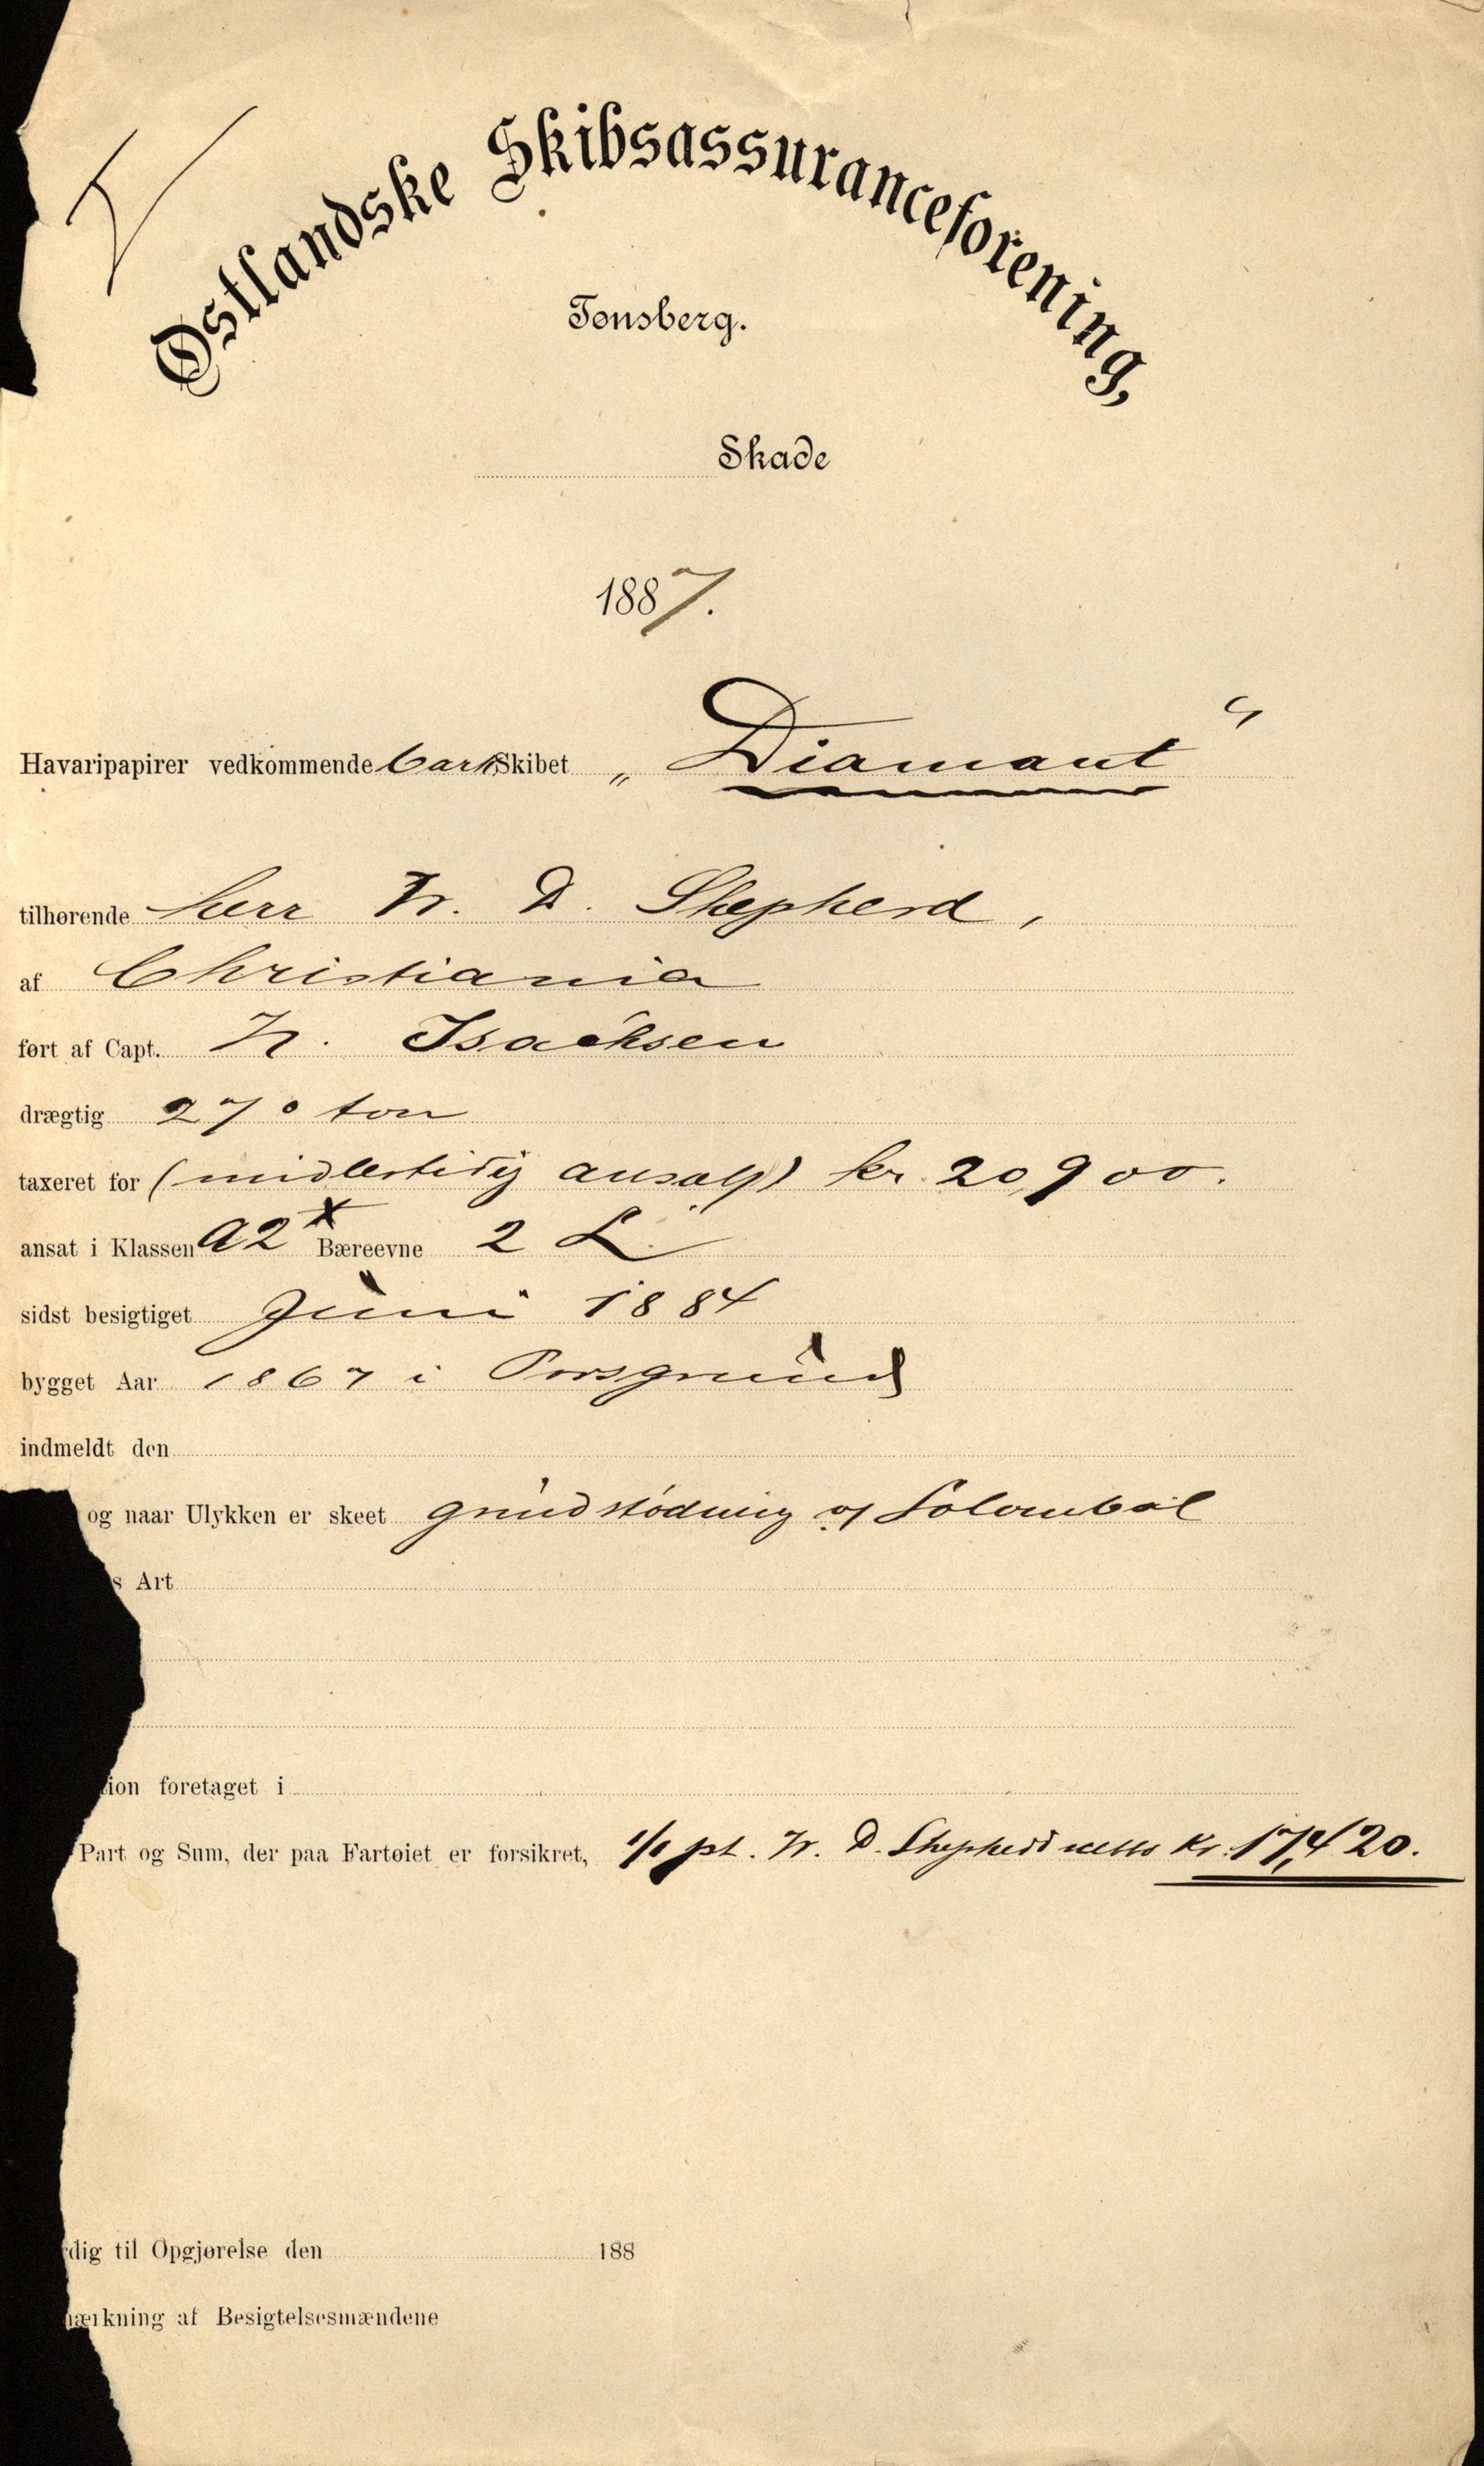 Østlandske Skibsassuranceforening,
Tønsberg.
Skade
1887.
Havaripapirer vedkommende bark Skibet „Diamant“
tilhørende Herr W. D. Shepherd,
af Christiania
ført af Capt. N. Isachsen
drægtig 270 ton
taxeret for (midlertidig ansat) kr. 20,900.
ansat i Klassen A2 Bæreevne 2 L.
sidst besigtiget Juni 1884
bygget Aar 1867 i Porsgrund
indmeldt den
og naar Ulykken er skeet grundstødning
s Art
tion foretaget i
Part og Sum, der paa Fartøiet er forsikret, 1/1 pt. W. D. Shepherd netto Kr. 17,420.
dig til Opgjørelse den 188
mærkning af Besigtelsesmændene